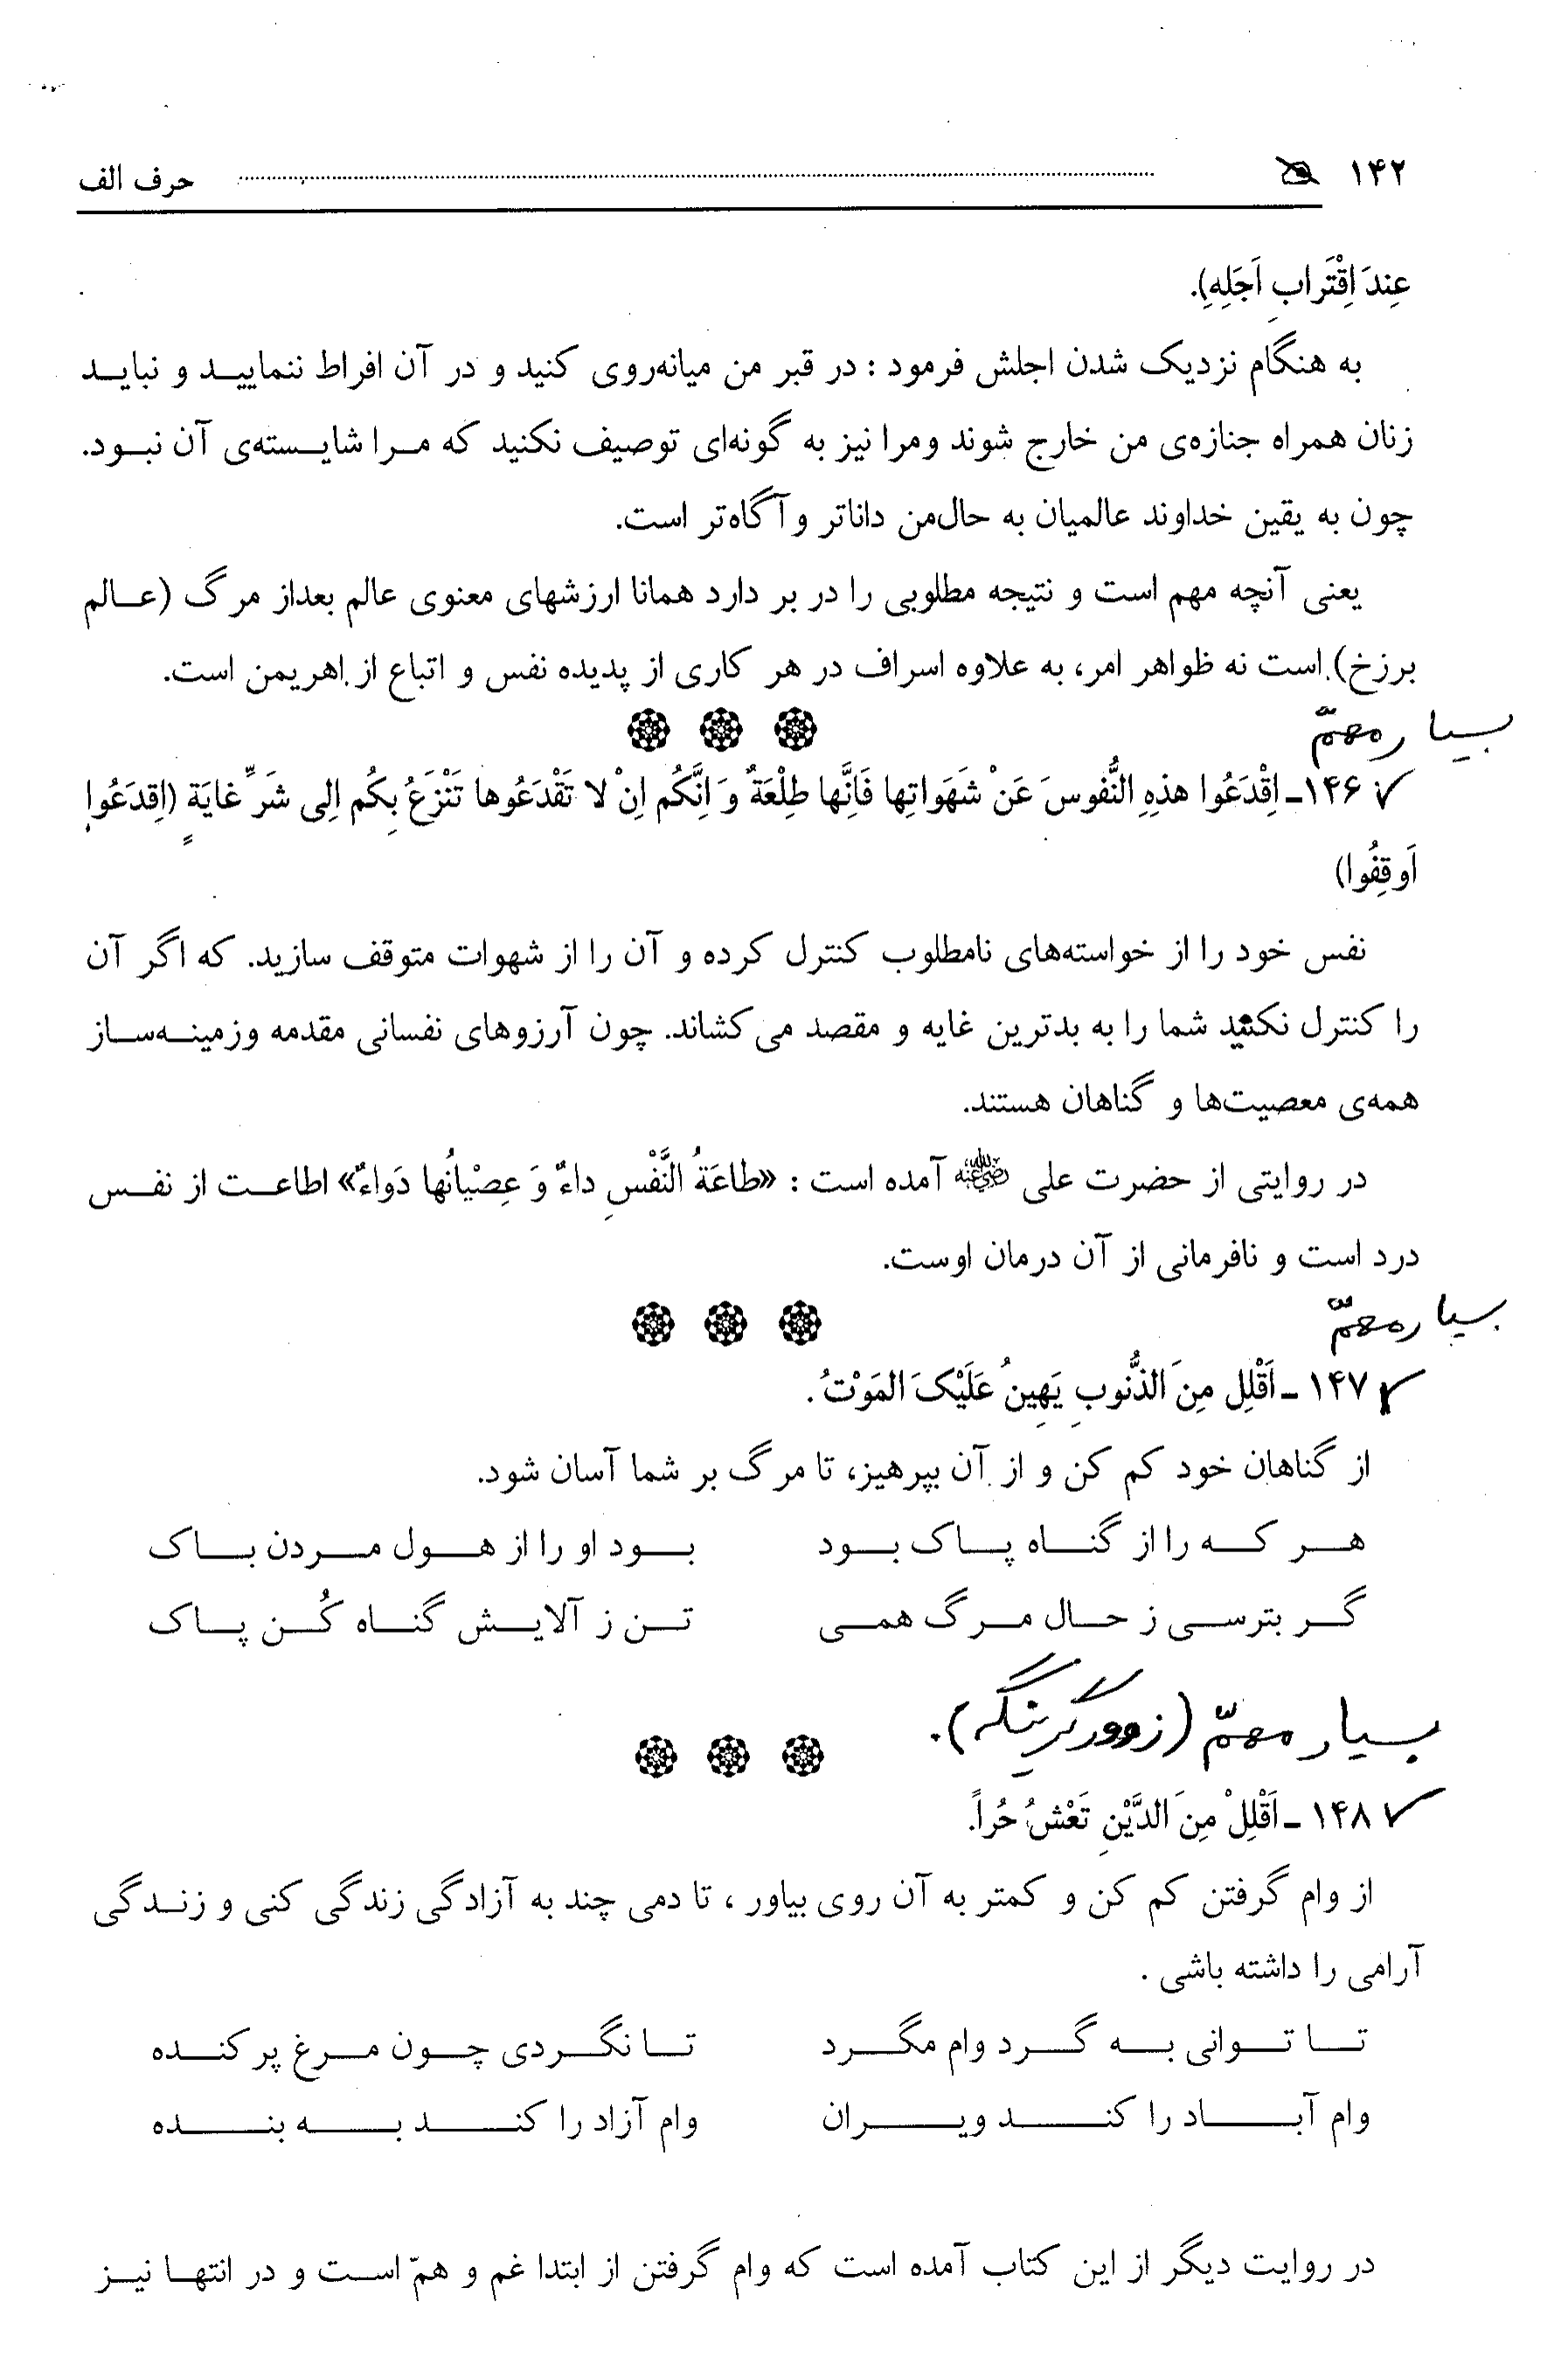 ۱۴۲ حرف الف
عِندَ اِقْتَرابِ اَجَلِهِ).
به هنگام نزدیک شدن اجلش فرمود : در قبر من میانه‌روی کنید و در آن افراط ننمایید و نباید
زنان همراه جنازه‌ی من خارج شوند ومرا نیز به گونه‌ای توصیف نکنید که مرا شایسته‌ی آن نبود.
چون به یقین خداوند عالمیان به حال‌من داناتر و آگاه‌تر است.
یعنی آنچه مهم است و نتیجه مطلوبی را در بر دارد همانا ارزشهای معنوی عالم بعداز مرگ (عالم
برزخ) است نه ظواهر امر، به علاوه اسراف در هر کاری از پدیده نفس و اتباع از اهریمن است.
بسیار مهمّ
۱۴۶ـ اِقْدَعُوا هذِهِ النُّفوسَ عَنْ شَهَواتِها فَاِنَّها طِلْعَةٌ وَ اِنَّكُم اِنْ لا تَقْدَعُوها تَنْزَعُ بِكُم اِلِی شَرِّ غایَةٍ (اِقدَعُوا
اَوقِفُوا)
نفس خود را از خواسته‌های نامطلوب کنترل کرده و آن را از شهوات متوقف سازید. که اگر آن
را کنترل نکنید شما را به بدترین غایه و مقصد می‌کشاند. چون آرزوهای نفسانی مقدمه وزمینه‌ساز
همه‌ی معصیت‌ها و گناهان هستند.
در روایتی از حضرت علی رضی الله عنه آمده است : «طاعَةُ النَّفْسِ داءٌ وَ عِصْیانُها دَواءٌ» اطاعت از نفس
درد است و نافرمانی از آن درمان اوست.
بسیار مهمّ
۱۴۷ ـ اَقْلِل مِنَ الذُّنُوبِ یَهِینُ عَلَیْکَ المَوْتُ .
از گناهان خود کم کن و از آن بپرهیز، تا مرگ بر شما آسان شود.
هر که را از گناه پاک بود بود او را از هول مردن باک
گر بترسی ز حال مرگ همی تن ز آلایش گناه کُن پاک
بسیار مهمّ (زوور گرینگه).
۱۴۸ ـ اَقْلِلْ مِنَ الدَّیْنِ تَعْشُ حُراً.
از وام گرفتن کم کن و کمتر به آن روی بیاور ، تا دمی چند به آزادگی زندگی کنی و زندگی
آرامی را داشته باشی .
تا توانی به گرد وام مگرد تا نگردی چون مرغ پر کنده
وام آباد را کند ویران وام آزاد را کند به بنده
در روایت دیگر از این کتاب آمده است که وام گرفتن از ابتدا غم و همّ است و در انتها نیز